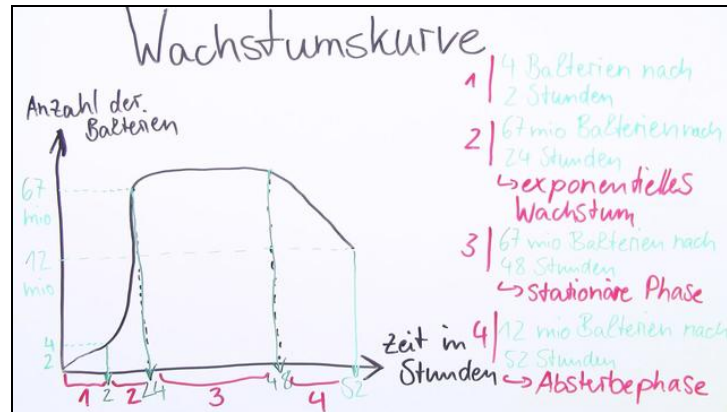 Wachstumskurve
Anzahl der.
Bakterien
67
mio
12
mio
4
2
1 2 2 24 3 48 4 52
Zeit in
Stunden
1 | 4 Bakterien nach
2 Stunden
2 | 67 mio Bakterien nach
24 Stunden
↳ exponentielles
Wachstum
3 | 67 mio Bakterien nach
48 Stunden
↳ stationäre Phase
4 | 12 mio Bakterien nach
52 Stunden
↳ Absterbephase